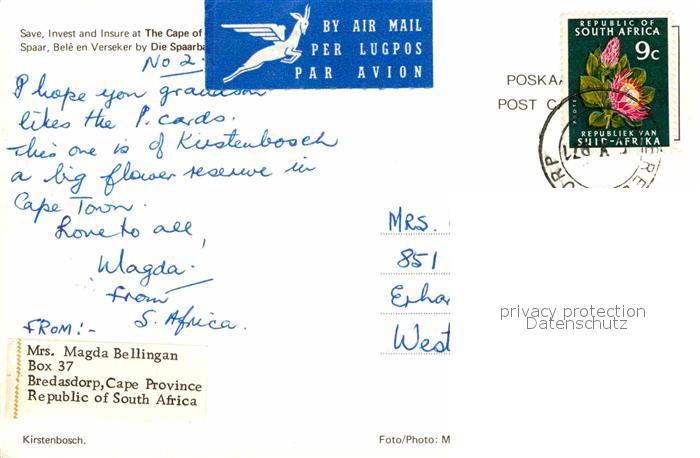 Save, Invest and Insure at The Cape of
Spaar, Belê en Verseker by Die Spaarba
BY AIR MAIL
PER LUGPOS
PAR AVION
REPUBLIC OF
SOUTH AFRICA
9c
REPUBLIEK VAN
SUID-AFRIKA
POSKA
POST C
No 2
I hope you grandson
likes the P. cards.
This one is of Kirstenbosch
a big flower reserve in
Cape Town.
Love to all,
Magda.
from
S. Africa.
FROM:-
Mrs. Magda Bellingan
Box 37
Bredasdorp, Cape Province
Republic of South Africa
MRS.
851
Erha
West
privacy protection
Datenschutz
Kirstenbosch.
Foto/Photo: M